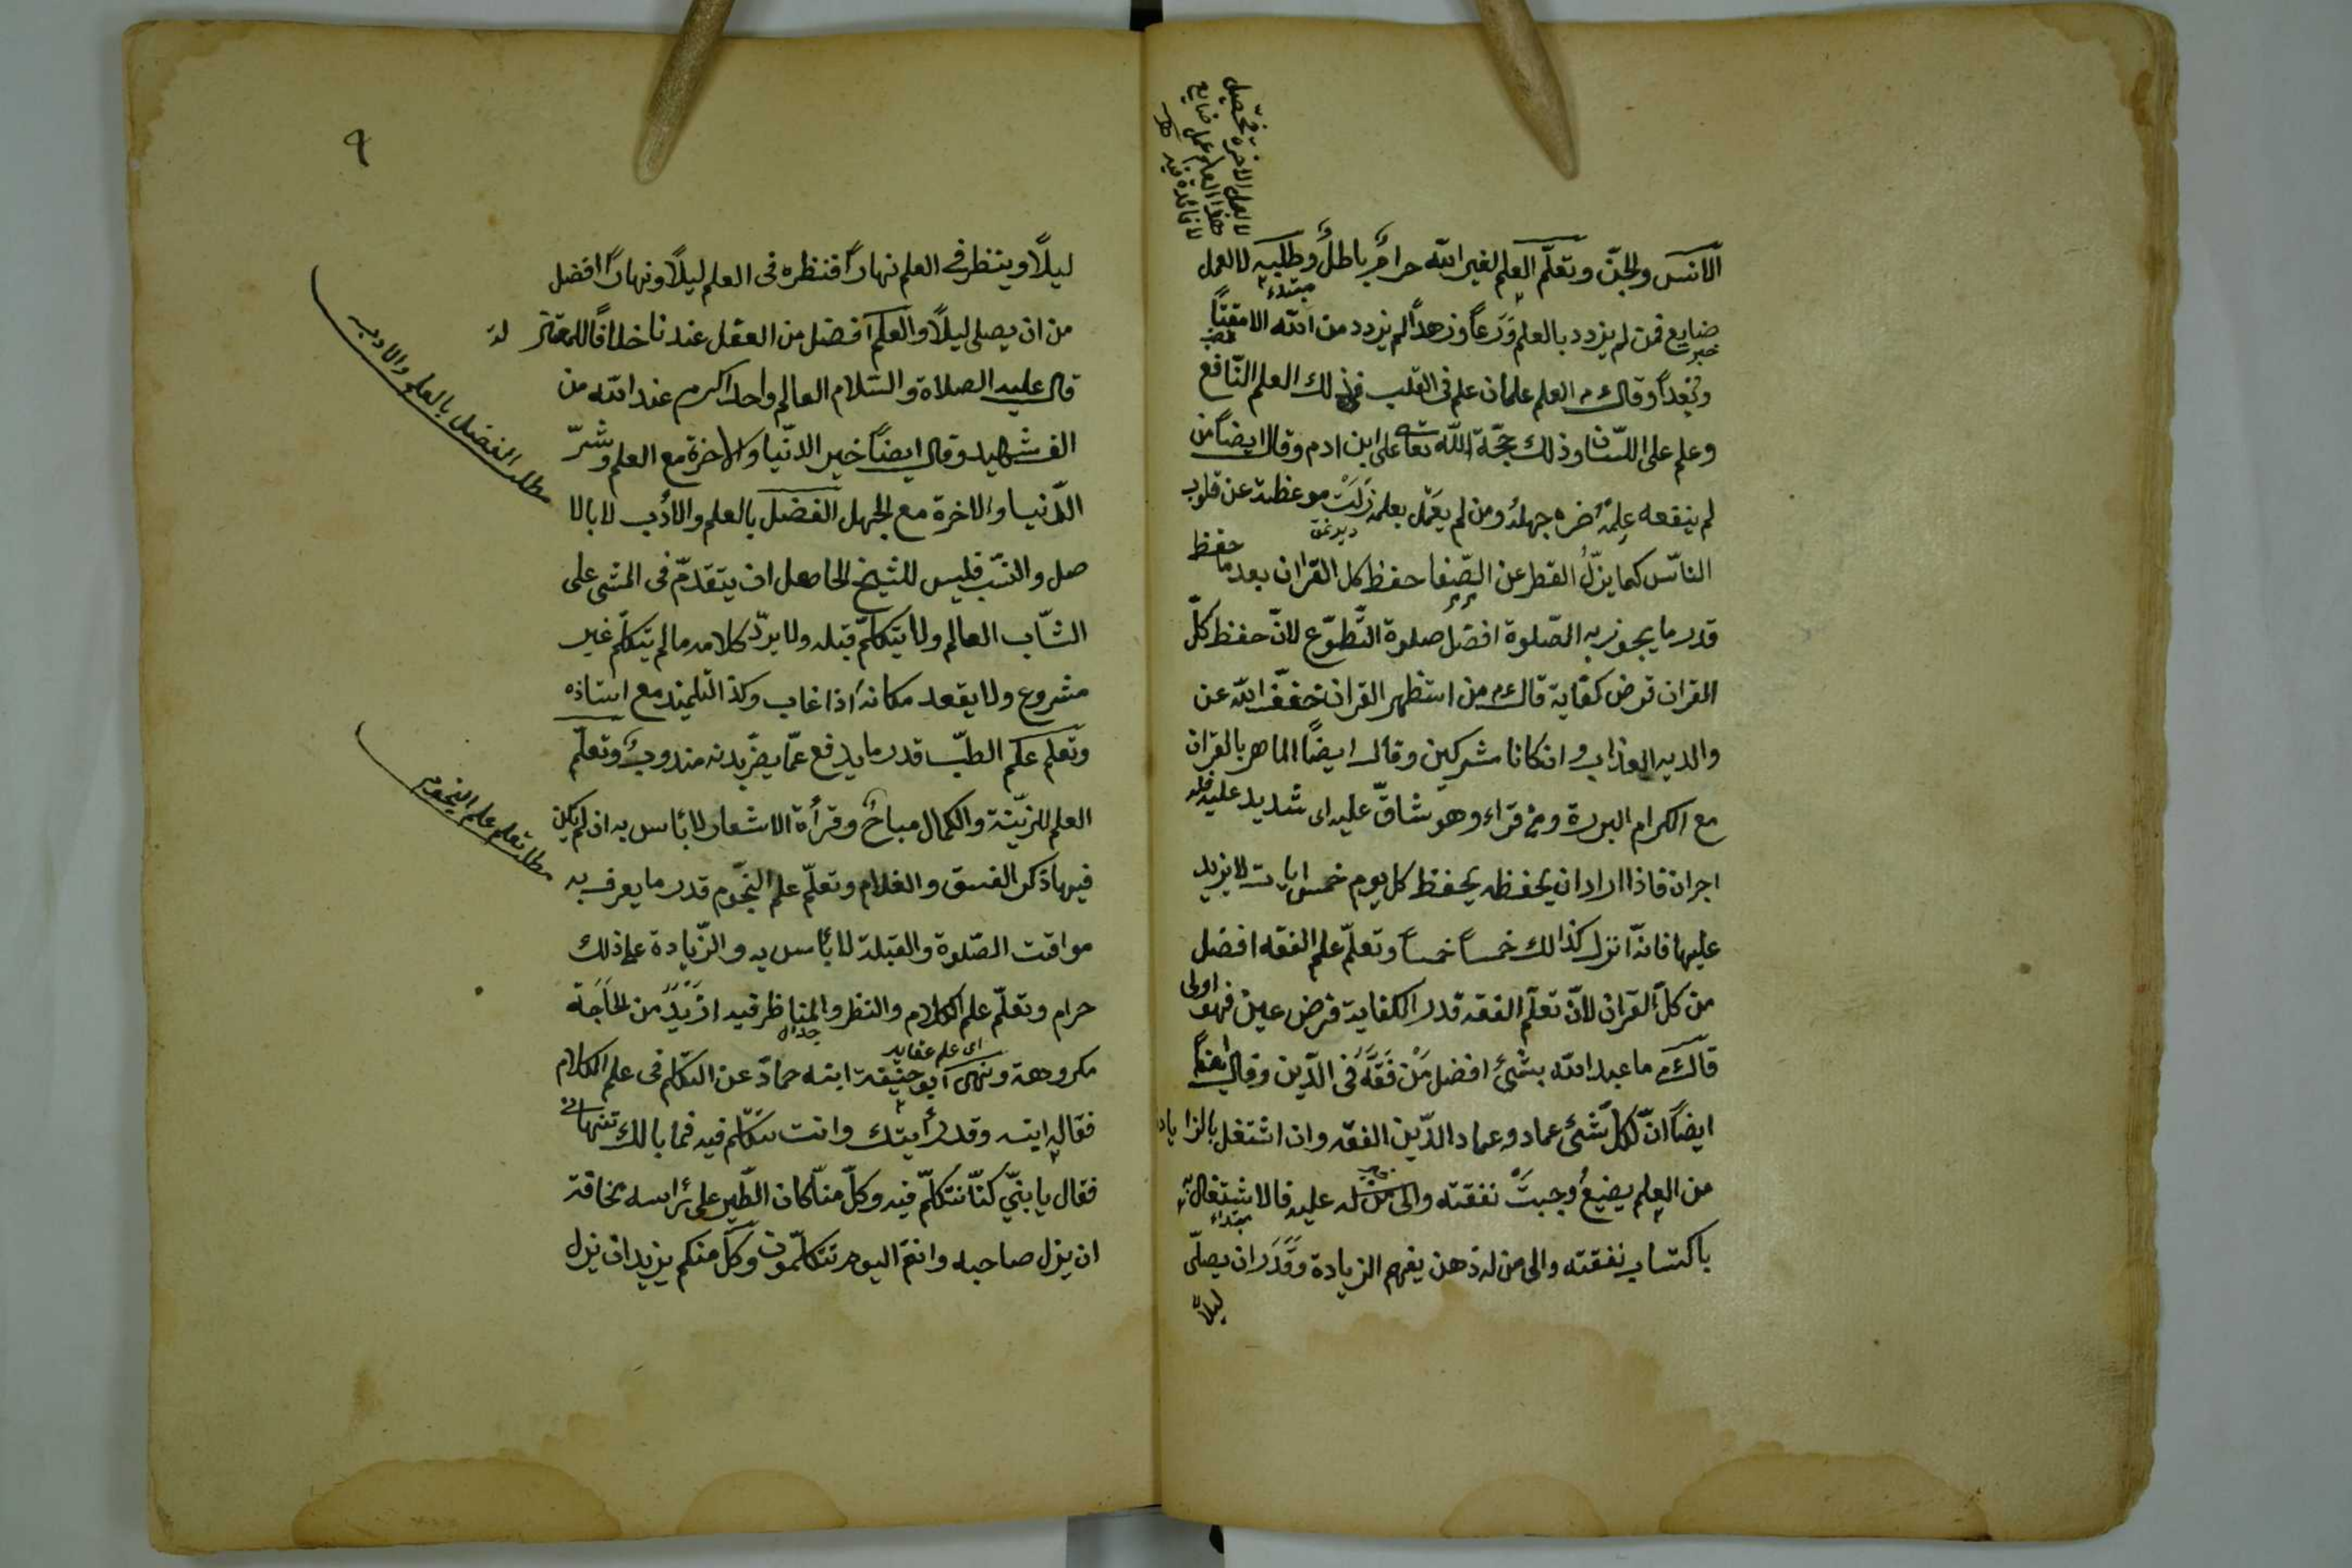 الانس والجنّ وتعلّم العلم لغير الله حرامٌ باطلٌ وطلبه لا للعمل
ضايع فمن لم يزدد بالعلم وَرَعاً وزهداً لم يزدد من الله الا مقتاً
وبُعداً وقال عم العلم علمان علم فى القلب فذلك العلم النّافع
وعلم على اللّسان وذلك حجّة الله تعا على ابن ادم وقال ايضاً من
لم ينفعه علمُه ضره جهلُه ومن لم يعمل بعلمه زلت موعظته عن قلوب
النّاس كما يزلّ القطر عن الصّفا حفظ كل القران بعد ما حفظ
قدر ما يجوز به الصّلوة افضل صلوة التّطوّع لانّ حفظ كلّ
القران فرض كفاية قال عم من استظهر القران خفّف الله عن
والديه العذاب وانكانا مشركين وقال ايضاً الماهر بالقران
مع الكرام البررة ومن قراء وهو شاقّ عليه اى شديد عليه فله
اجران فاذا اراد ان يحفظه يحفظ كل يوم خمس ايات لا يزيد
عليها فانّه انزل كذالك خمساً خمساً وتعلّم علم الفقه افضل
من كلّ القران لانّ تعلّم الفقه قدر الكفاية فرض عين فهو اولى
قال عم ما عبد الله بشئ افضل من فقه فى الدّين وقال ايضاً
ايضاً انّ لكلّ شئ عماد وعماد الدّين الفقه وان اشتغل بالزيادة
من العلم يضيعُ وجبت نفقته والى من له عليه فالاشتغال
باكتساب نفقته والى من له ذهن يفهم الزيادة وقدر ان يصلّى
ليلاً
لا لعمل الاخرة تحصيل
هذا العلم عمل ضايع
لا فائدة فيه
٩
ليلاً وينظر فى العلم نهاراً فنظره فى العلم ليلاً ونهاراً افضل
من ان يصلى ليلاً والعلم افضل من العقل عندنا خلافاً للمعتز لة
قال عليه الصلاة والسّلام العالم واحد اكرم عند الله من
الف شهيد وقال ايضاً خير الدّنيا والاخرة مع العلم وشرّ
الدّنيا والاخرة مع الجهل الفضل بالعلم والأدب لا بالا
صل والنسب فليس للشيخ الجاهل ان يتقدّم فى المشى على
الشّاب العالم ولا يتكلّم قبله ولا يردّ كلامه ما لم يتكلّم غير
مشروع ولا يقعد مكانه اذا غاب وكذا التلميذ مع استاذه
وتعلّم علم الطبّ قدر ما يدفع عمّا يضرّ بدنه مندوبٌ وتعلّم
العلم للزينة والكمال مباحٌ وقرأة الاشعار لا بأس به ان لم يكن
فيها ذكر الفسق والغلام وتعلّم علم النّجوم قدر ما يعرف به
مواقت الصّلوة والقبلة لا بأس به والزّيادة على ذلك
حرام وتعلّم علم الكلام والنظر والمناظر فيه ازيد من الحاجة
مكروهة ونهى ابو حنيفة ابنه حمادّ عن التكلّم فى علم الكلام
اى علم عقايد
فقال ابنه وقد رأيتك وانت تتكلّم فيه فما بالك تنهانى
فقال يا بنىّ كنّا نتكلّم فيه وكلّ منّا كان الطّير على رأسه مخافة
ان يزل صاحبه وانتم اليوم تتكلّمون وكلّ منكم يريد ان يزل
مطلب الفضل بالعلم والادب
مطلب تعلم علم النجوم